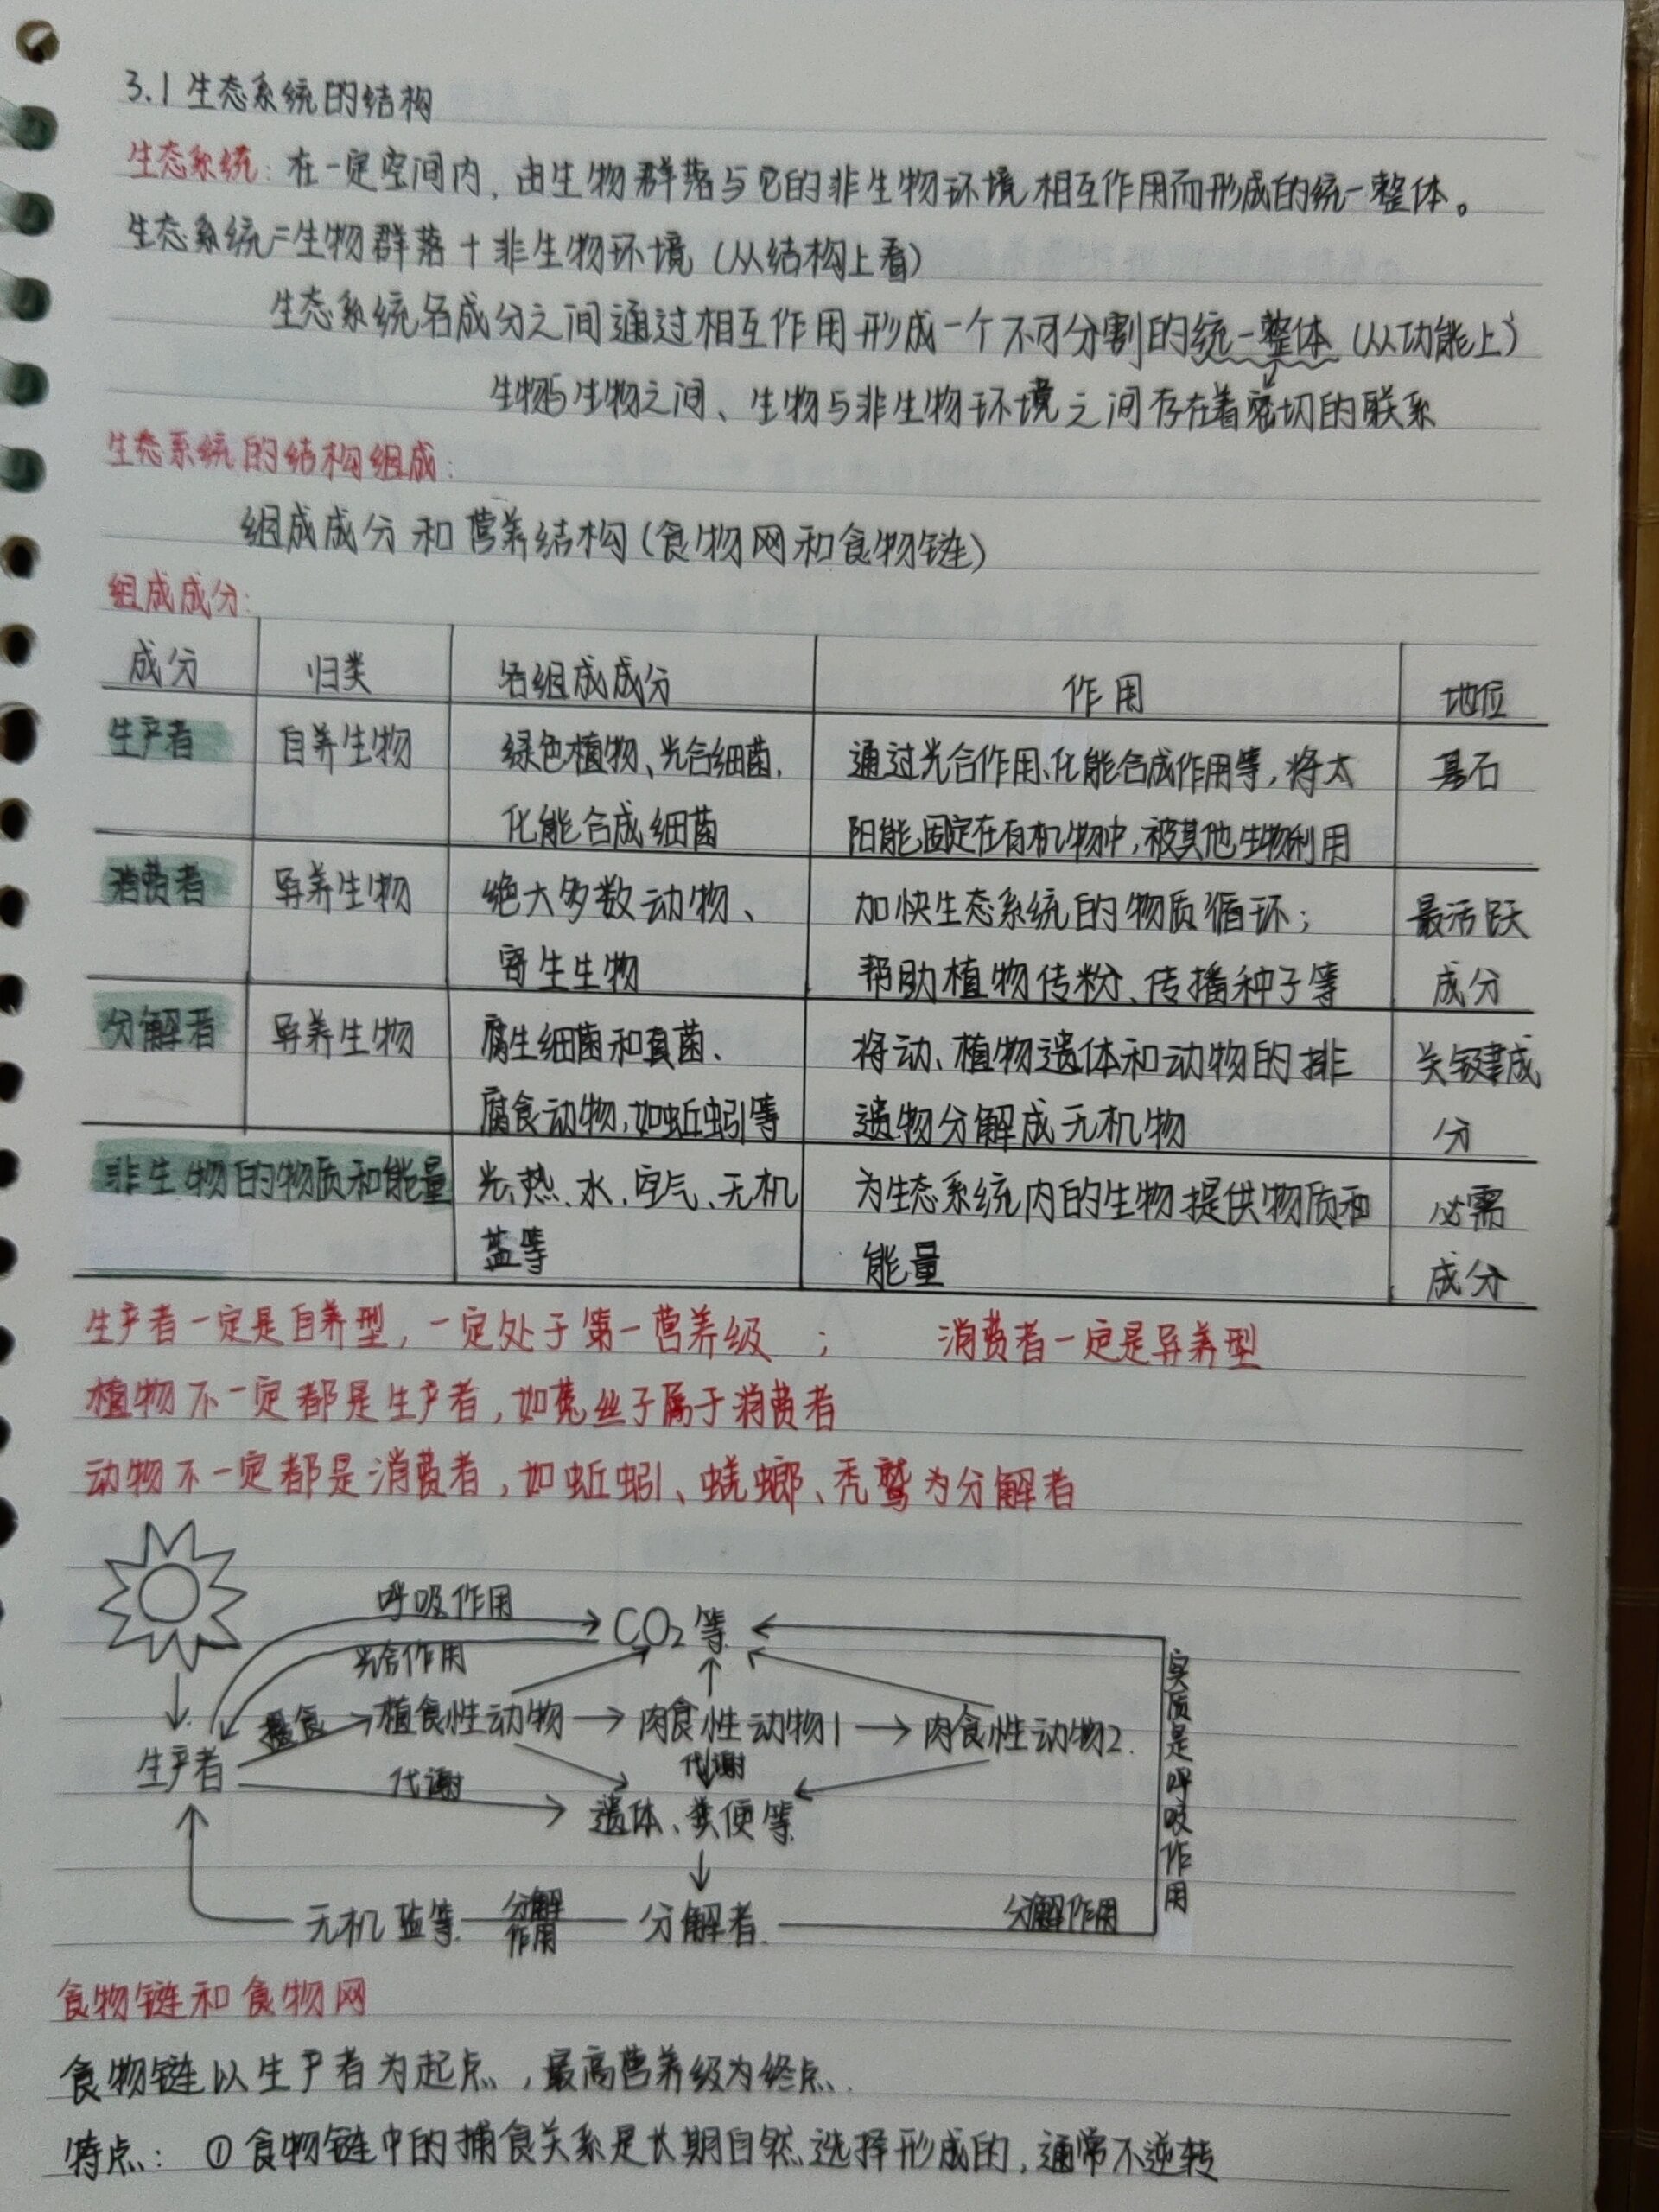 3.1 生态系统的结构
生态系统：在一定空间内，由生物群落与它的非生物环境相互作用而形成的统一整体。
生态系统=生物群落+非生物环境（从结构上看）
生态系统各成分之间通过相互作用形成一个不可分割的统一整体（从功能上）
生物与生物之间、生物与非生物环境之间存在着密切的联系
生态系统的结构组成：
组成成分和营养结构（食物网和食物链）
组成成分：
成分 归类 各组成成分 作用 地位
生产者 自养生物 绿色植物、光合细菌、 通过光合作用、化能合成作用等，将太 基石
化能合成细菌 阳能固定在有机物中，被其他生物利用
消费者 异养生物 绝大多数动物、 加快生态系统的物质循环； 最活跃
寄生生物 帮助植物传粉、传播种子等 成分
分解者 异养生物 腐生细菌和真菌、 将动、植物遗体和动物的排 关键成
腐食动物，如蚯蚓等 遗物分解成无机物 分
非生物的物质和能量 光、热、水、空气、无机 为生态系统内的生物提供物质和 必需
盐等 能量 成分
生产者一定是自养型，一定处于第一营养级； 消费者一定是异养型
植物不一定都是生产者，如菟丝子属于消费者
动物不一定都是消费者，如蚯蚓、蜣螂、秃鹫为分解者
呼吸作用 CO₂等
光合作用
生产者 摄食 植食性动物 肉食性动物1 肉食性动物2
代谢 代谢
遗体、粪便等
实质是呼吸作用
无机盐等 分解作用 分解者 分解作用
食物链和食物网
食物链以生产者为起点，最高营养级为终点.
特点：①食物链中的捕食关系是长期自然选择形成的，通常不逆转